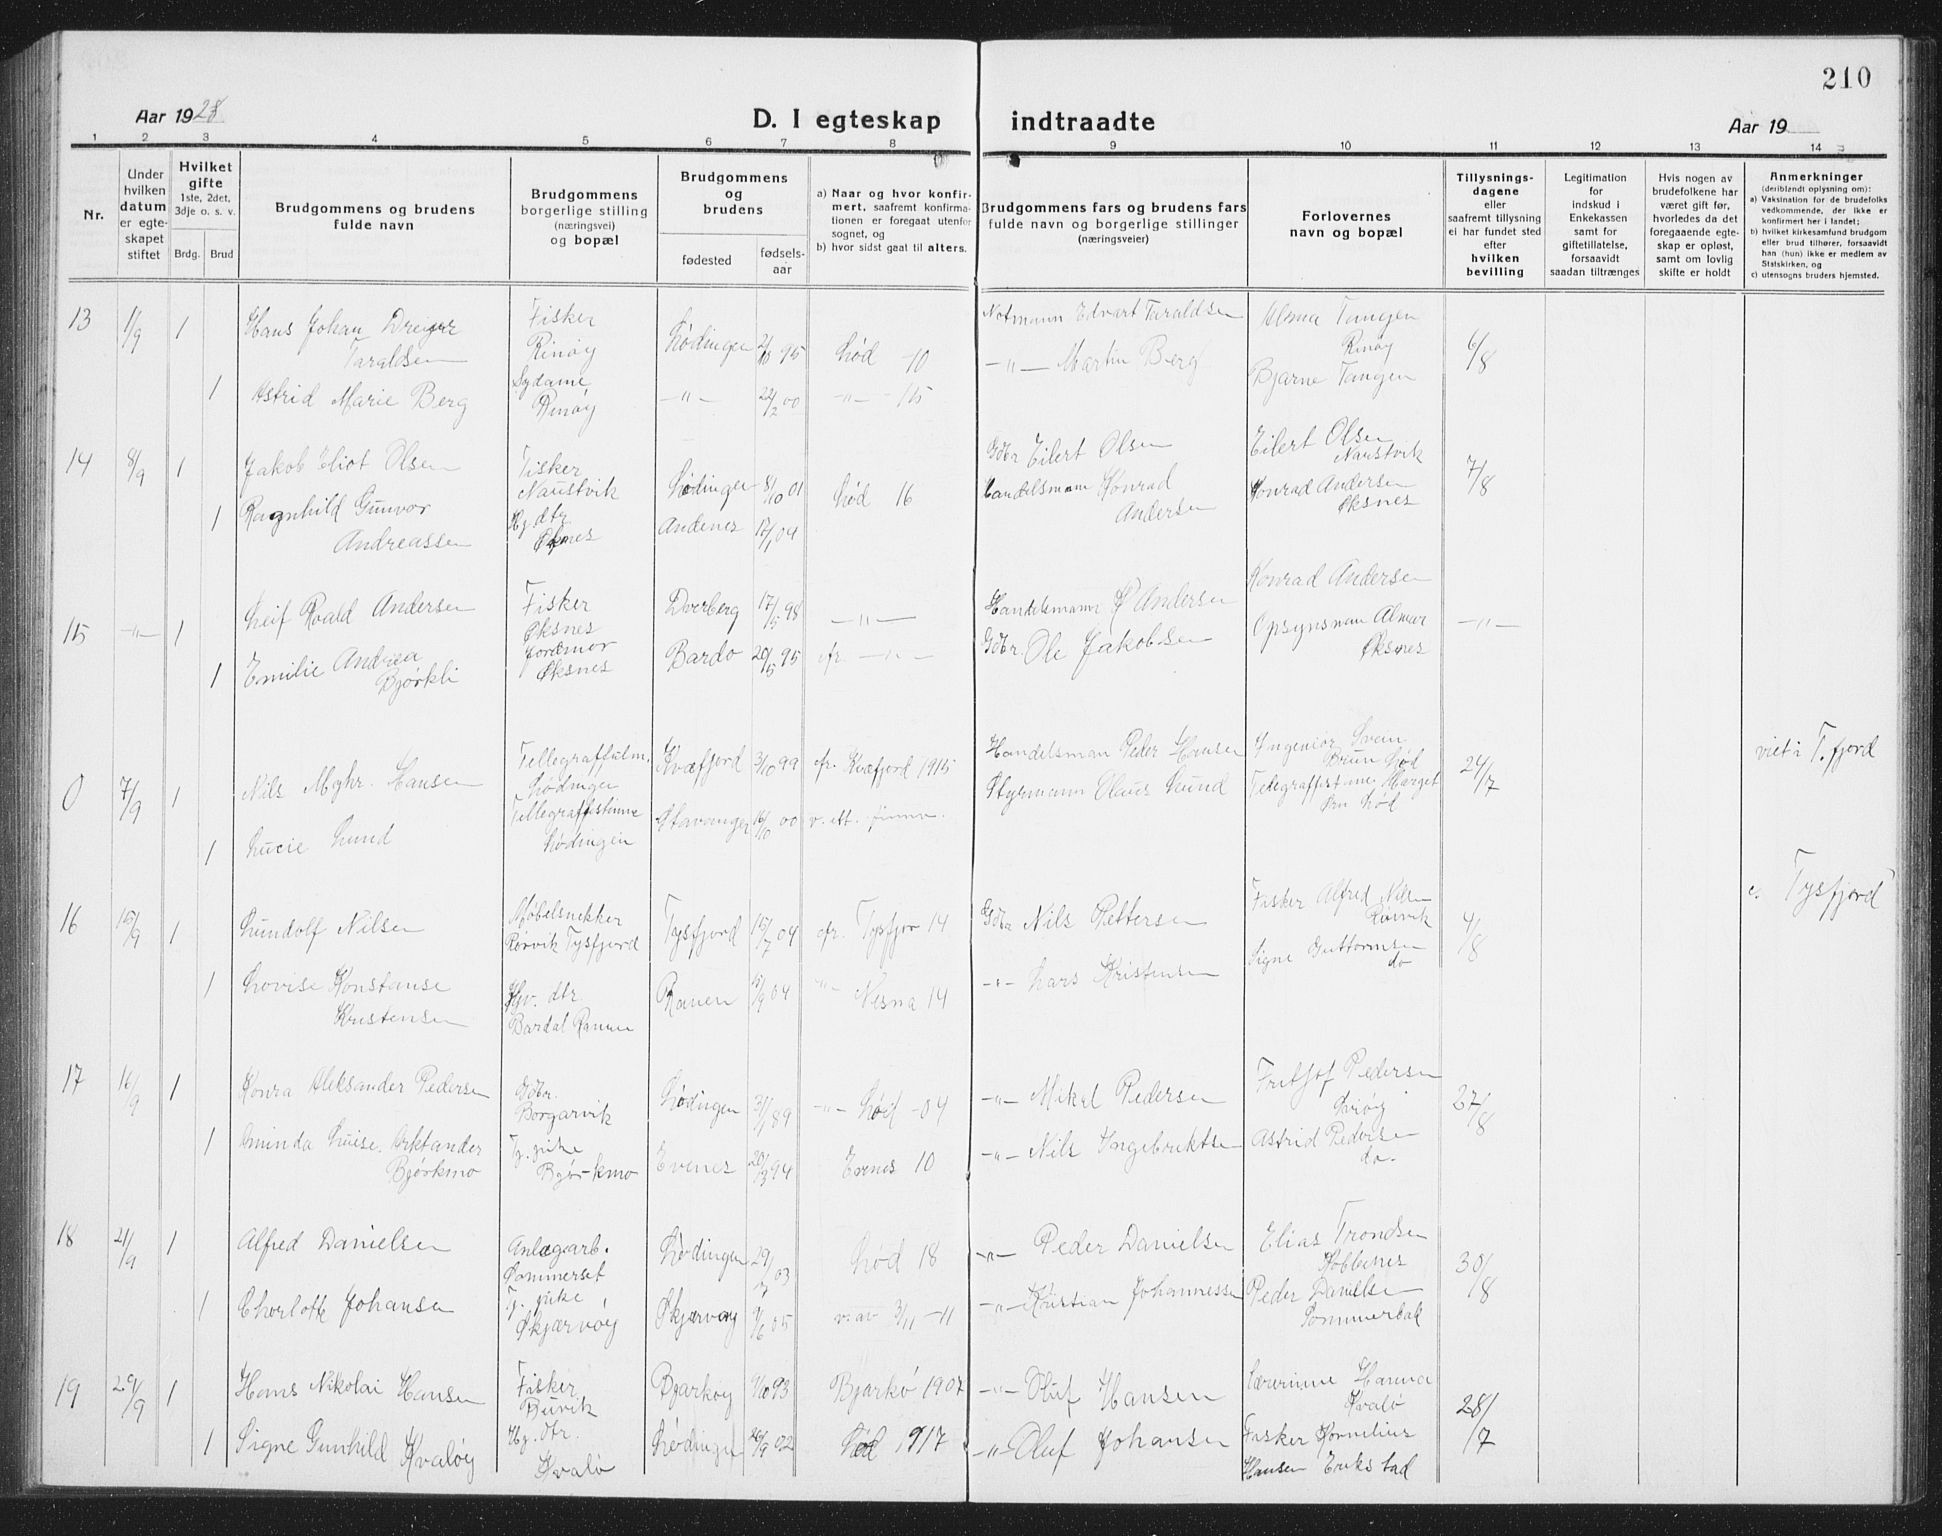 210
Aar 1928
D. I egteskap indtraadte
Aar 19
1 2 3 4 5 6 7 8 9 10 11 12 13 14
Nr.
Under hvilken datum er egteskapet stiftet
Hvilket gifte 1ste, 2det, 3dje o. s. v.
Brdg. Brud
Brudgommens og brudens fulde navn
Brudgommens borgerlige stilling (næringsvei) og bopæl
Brudgommens og brudens
fødested
fødsels-aar
a) Naar og hvor konfirmert, saafremt konfirmationen er foregaat utenfor sognet, og
b) hvor sidst gaat til alters.
Brudgommens fars og brudens fars fulde navn og borgerlige stillinger (næringsveier)
Forlovernes navn og bopæl
Tillysningsdagene eller saafremt tillysning ei har fundet sted efter hvilken bevilling
Legitimation for indskud i Enkekassen samt for giftetillatelse, forsaavidt saadan tiltrænges
Hvis nogen av brudefolkene har været gift før, hvorledes da det foregaaende egteskap er opløst, samt om lovlig skifte er holdt
Anmerkninger (deriblandt oplysning om):
a) Vaksination for de brudefolks vedkommende, der ikke er konfirmert her i landet;
b) hvilket kirkesamfund brudgom eller brud tilhører, forsaavidt han (hun) ikke er medlem av Statskirken, og
c) utensogns bruders hjemsted.
13 1/9 1 Hans Johan Dreyer Taraldsen Fisker Rinøy Lødingen 2/10 95 Lød -10 Notmann Edvart Taraldsen Alma Tangen Rinøy 6/8
1 Astrid Marie Berg Sydame Rinøy -"- 22/2 00 -"- -15 -"- Martin Berg Bjarne Tangen
14 8/9 1 Jakob Eliot Olsen Fisker Naustvik Lødingen 8/10 01 Lød 16 Gdbr Eilert Olsen Eilert Olsen Naustvik 7/8
1 Ragnhild Gunvor Andreassen Hj. dtr Øksnes Andenes 17/1 04 Handelsmann Konrad Andersen Konrad Andersen Øksnes
15 -"- 1 Leif Roald Andersen Fisker Øksnes Dverberg 17/5 98 -"- Handelsmann K Andersen Konrad Andersen -"-
1 Emilie Andrea Bjorkli Jordmor Øksnes Bardo 20/5 95 efr. -"- Gdbr. Ole Jakobsen Opsynsman Almar Øksnes
0 7/9 1 Nils Myhr. Hansen Lødingen Kvæfjord 3/10 99 efr. Kvæfjord 1915 Handelsman Peder Hansen Ingeniør Svein Bruun Lød 24/7 viet i T.fjord
1 Lucie Lund Tellegrafistinne Lødingen Stavanger 16/10 00 Styrmann Olaus Lund Telegrafistinne Lød
16 15/9 1 Lundolf Nilsen Møbelsnekker Rørvik Tysfjord Tysfjord 15/7 04 efr. Tysfjor 14 Gdbr Nils Pettersen Fisker Alfred Nilsen Rørvik 4/8 c. Tysfjord
1 Lovise Konstanse Kristensen Hjv. dtr Bardal Ranen Ranen 5/9 04 -"- Nesna 14 -"- Lars Kristensen Signe Guttormsen do
17 16/9 1 Konra Aleksander Pedersen Gdbr. Borgarvik Lødingen 31/1 89 -"- Lød -04 -"- Mikal Pedersen Fritjof Pedersen 27/8
1 Aminda Luise. Arktander Bjørkmo Tj. pike Bjør-kmo Evenes 20/3 94 Evenes 10 -"- Nils Ingebruktsen Astrid Pedersen do.
18 21/9 1 Alfred Danielsen Anlægsarb. Sommerset Lødingen 29/7 03 Lød 18 -"- Peder Danielsen Elias Trondsen Kobbenes 30/8
1 Charlotte Johansen Tj. pike, Skjærvøy Skjærvøy 9/6 05 v. av 3/11 -11 -"- Kristian Johannessen Peder Danielsen Sommerbak
19 29/9 1 Hans Nikolai Hansen Fisker Buvik Bjarkøy 9/10 93 Bjarkø 1907 -"- Oluf Hansen Lærerinne Hanna Kvalø 28/7
1 Signe Gunhild Kvaløy Hj. dtr. Kvalø Lødingen 26/9 02 Lød 1917 -"- Oluf Johansen Fisker Kornelius Hansen Erikstad